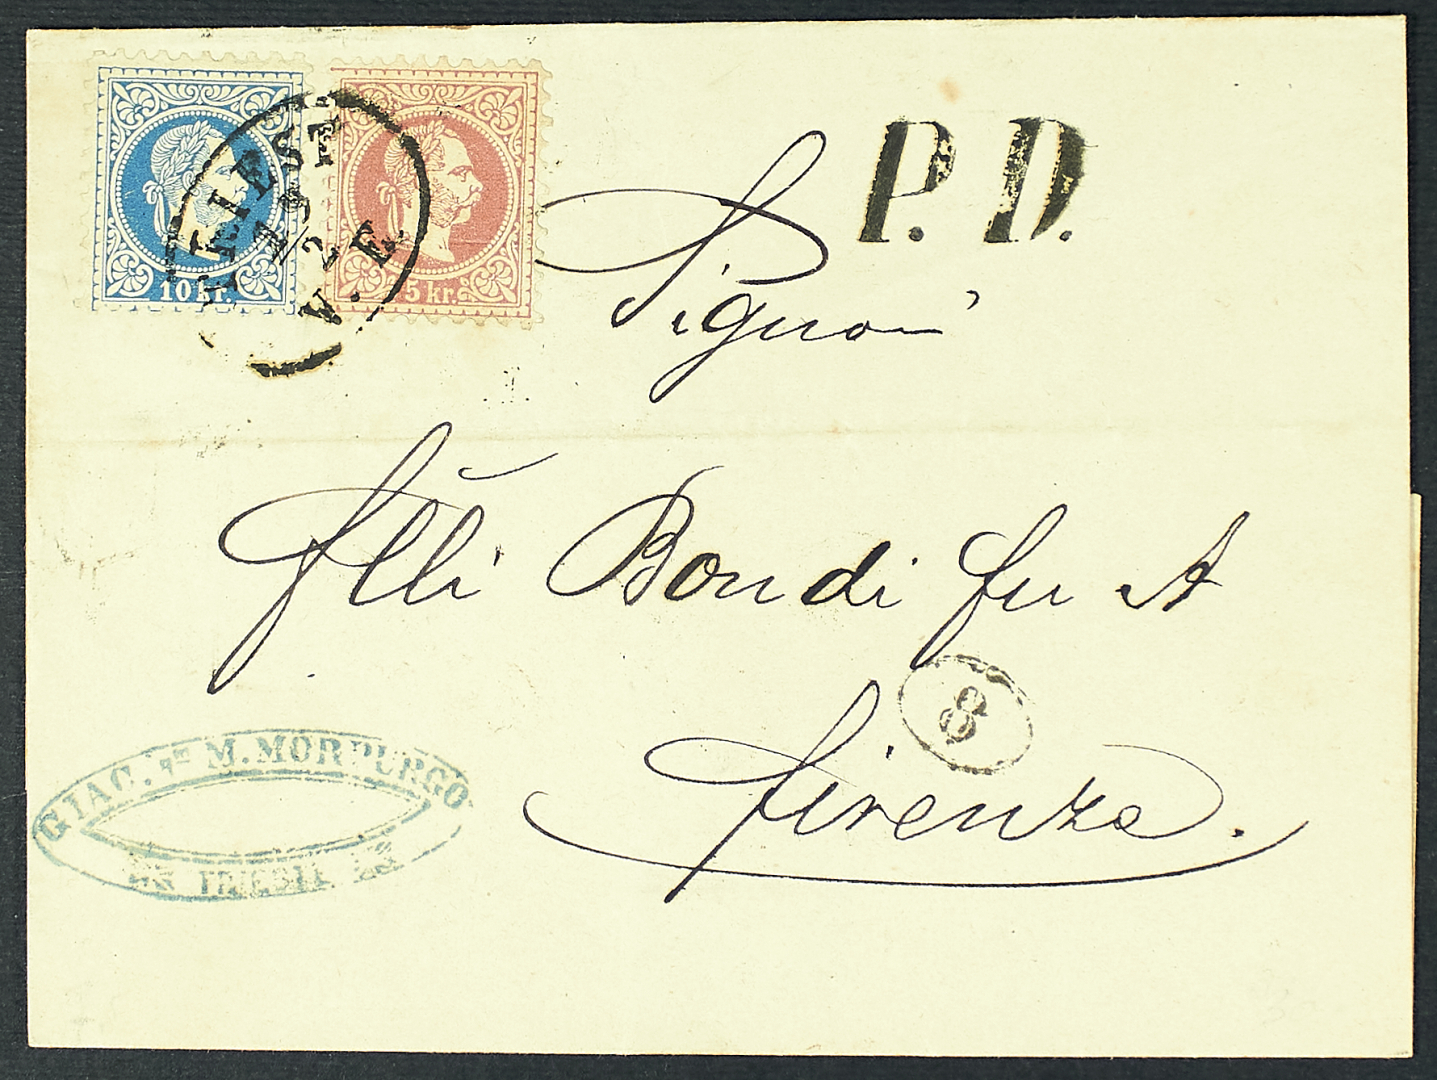 10 kr.
5 kr.
TRIEST
7/2
V. E.
P. D.
Signori
Flli Bondi fu A
8
Firenze.
GIAC. M. MORPURGO
TRIESTE